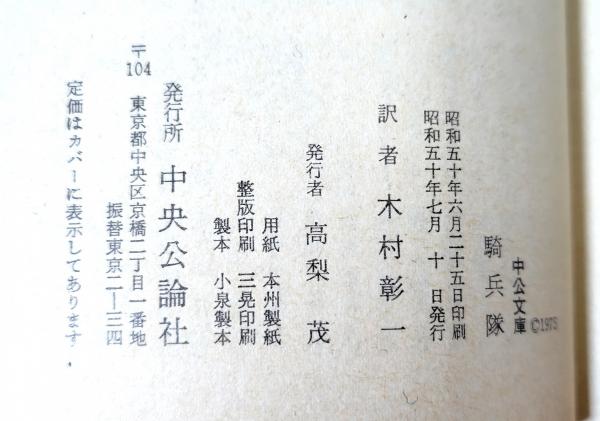 中公文庫 ©1975
騎兵隊
昭和五十年六月二十五日印刷
昭和五十年七月 十 日発行
訳者 木村彰一
発行者 高梨 茂
用紙 本州製紙
整版印刷 三晃印刷
製本 小泉製本
発行所 中央公論社
〒104 東京都中央区京橋二丁目一番地
振替東京二ー三四
定価はカバーに表示してあります.